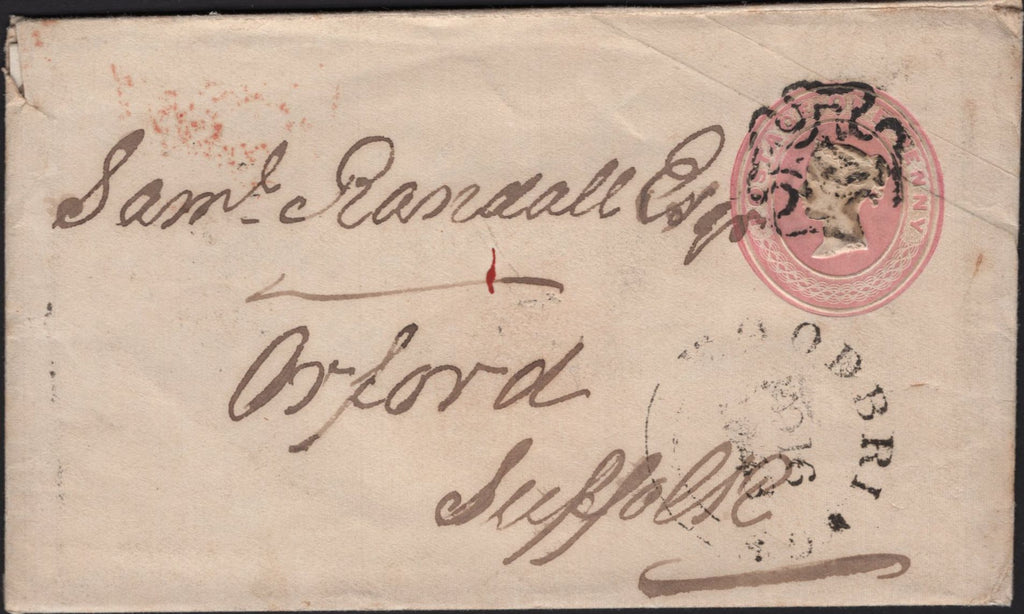 Saml. Randall Esqr
Orford
Suffolk
POSTAGE ONE PENNY
WOODBRI